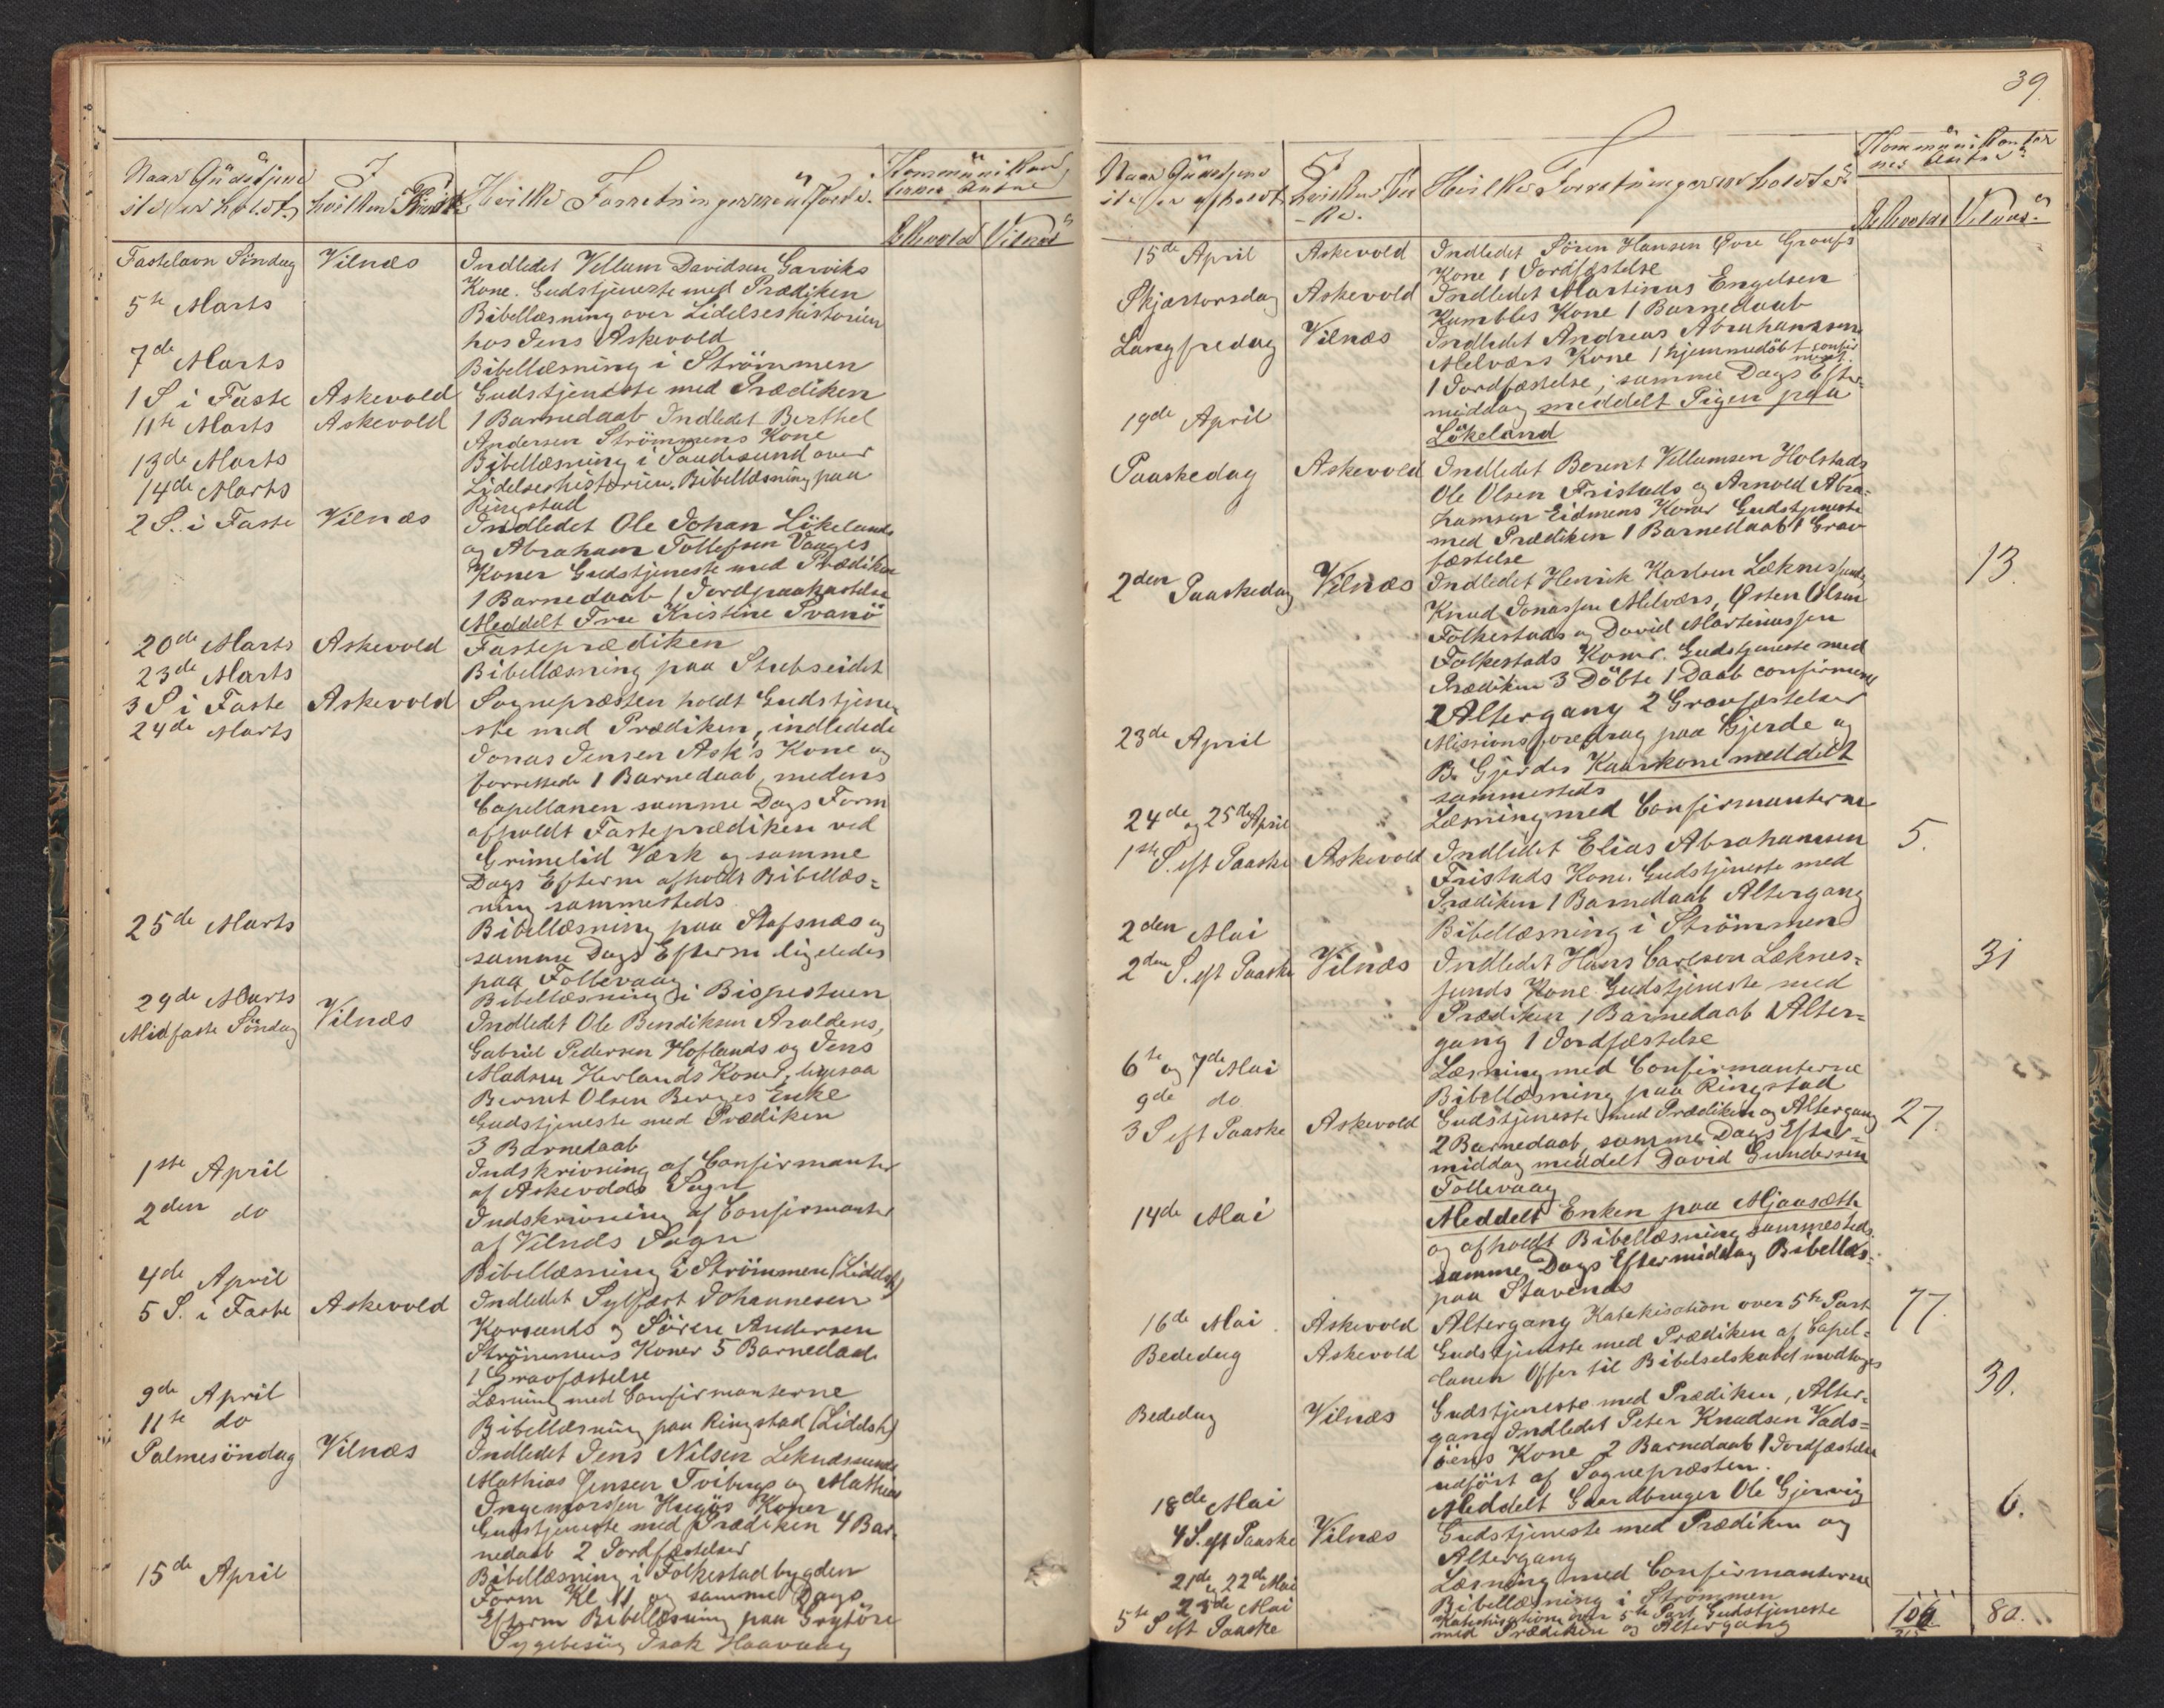 Naar Gudstjene
I
Hvilke Forretninger er udförte.
hvilken Kirke
Fastelavn Söndag Vilnæs Indledet Vellum Davidsen Garviks
Kone. Gudstjeneste med Prædiken
5te Marts Bibellæsning over Lidelseshistorien
hos Jens Askevold
7de Marts Bibellæsning i Strömmen
1 S i Faste Askevold Gudstjeneste med Prædiken
11te Marts Askevold 1 Barnedaab Indledet Berthel
Andersen Strömmens Kone
13de Marts Bibellæsning i Sandesund over
14de Marts Lidelseshistorien. Bibellæsning paa
Ringstad
2 S. i Faste Vilnæs Indledet Ole Johan Lökelands
og Abraham Tollefsen Vaages
Koner Gudstjeneste med Prædiken
1 Barnedaab 1 Jordpaakastelse
Meddelt Frue Kristine Svanö
20de Marts Askevold Fasteprædiken
23de Marts Bibellæsning paa Stubseidet
3 S i Faste Askevold Sognepræsten holdt Gudstjene
24de Marts ste med Prædiken, indledede
Jonas Jensen Ask's Kone og
forrettede 1 Barnedaab, medens
Capellanen samme Dags Form
afholdt Fasteprædiken ved
Grimelid Værk og samme
Dags Efterm afholdt Bibellæs=
ning sammesteds
25de Marts Bibellæsning paa Stafsnæs og
samme Dags Efterm ligeledes
paa Follevaag
29de Marts Bibellæsning i Bispestuen
Midfaste Söndag Vilnæs Indledet Ole Bendiksen Araldens,
Gabriel Pedersen Hoflands og Jens
Madsen Herlands Koner, ligesaa
Bernt Olsen Berges Enke
Gudstjeneste med Prædiken
3 Barnedaab
1ste April Indskrivning af Confirmanter
af Askevolds Sogn
2den do Indskrivning af Confirmanter
af Vilnæs Sogn
4de April Bibellæsning i Strömmen (Lidelsh)
5 S. i Faste Askevold Indledet Sylfæst Johannesen
Korsunds og Sören Andersen
Strömmens Koner 5 Barnedaab
1 Gravfæstelse
9de April Læsning med Confirmanterne
11te do Bibellæsning paa Ringstad (Lidelsh)
Palmesöndag Vilnæs Indledet Jens Nilsen Leknæssunds
Mathias Jensen Tvibergs og Mathias
Koner
Gudstjeneste med Prædiken 4 Bar
nedaab 2 Jordfæstelser
15de April Bibellæsning i Folkestadbygden
Form Kl 11 og samme Dags
Efterm Bibellæsning paa Grytöre
Sygebesög Isak Haavaag
39.
Hvilke Forretninger er holdte
Askevold Vilnæs
15de April Askevold Indledet Sören Hansen Övre Grovfs
Kone 1 Jordfæstelse
Skjærtorsdag Askevold Indledet Martinus Engelsen
Kumbles Kone 1 Barnedaab
Langfredag Vilnæs Indledet Andreas Abrahamsen
Melværs Kone 1 hjemmedöbt confir
meret.
1 Jordfæstelse; samme Dags Efter=
19de April middag meddelt Pigen paa
Lökeland
Paaskedag Askevold Indledet Berent Vellumsen Holstads
Ole Olsen Fristads og Arnold Abra=
hamsen Eidmens Koner Gudstjeneste
med Prædiken 1 Barnedaab 1 Grav
fæstelse
2den Paaskedag Vilnæs Indledet Henrik Karlsen Læknessunds 13.
Knud Jonassen Melværs, Østen Olsen
Folkestads og David Martinussen
Folkestads Koner. Gudstjeneste med
Prædiken 3 Döbte 1 Daab confirmeret
1 Altergang 2 Gravfæstelser
23de April Missionsforedrag paa Gjerde og
B. Gjerdes Kaarkone meddelt
sammesteds
24de og 25de April Læsning med Confirmanterne
1ste S. eft Paaske Askevold Indledet Elias Abrahamsen 5.
Fristads Kone. Gudstjeneste med
Prædiken 1 Barnedaab Altergang
2den Mai Bibellæsning i Strömmen
2den S. eft Paaske Vilnæs Indledet Hans Carlsen Læknes= 31
sunds Kone Gudstjeneste med
Prædiken 1 Barnedaab 1 Alter=
gang 1 Jordfæstelse
6te og 7de Mai Læsning med Confirmanterne
9de do Bibellæsning paa Ringstad
3 S eft Paaske Askevold Gudstjeneste med Prædiken og Altergang 27.
2 Barnedaab, samme Dags Efter=
middag meddelt David Gundersen
Follevaag
14de Mai Meddelt Enken paa Mjaasæth
og afholdt Bibellæsning sammesteds.
samme Dags Eftermiddag Bibellæs.
paa Stavenæs
16de Mai Askevold Altergang Katekisation over 5te Part 77.
Bededag Askevold Gudstjeneste med Prædiken af Capel=
lanen Offer til Bibelselskabet modtoges
Bededag Vilnæs Gudstjeneste med Prædiken, Alter= 30.
gang Indledet Peter Knudsen Vads=
öens Kone 2 Barnedaab 1 Jordfæstelse
udfört af Sognepræsten.
18de Mai Meddelt Gaardbruger Ole Gjervig
4 S. eft Paaske Vilnæs Gudstjeneste med Prædiken og 6.
Altergang
21de og 22de Mai Læsning med Confirmanterne
Mai Bibellæsning i Strömmen
5te S eft Paaske Katekisation over 5te Part Gudstjeneste 80.
med Prædiken og Altergang